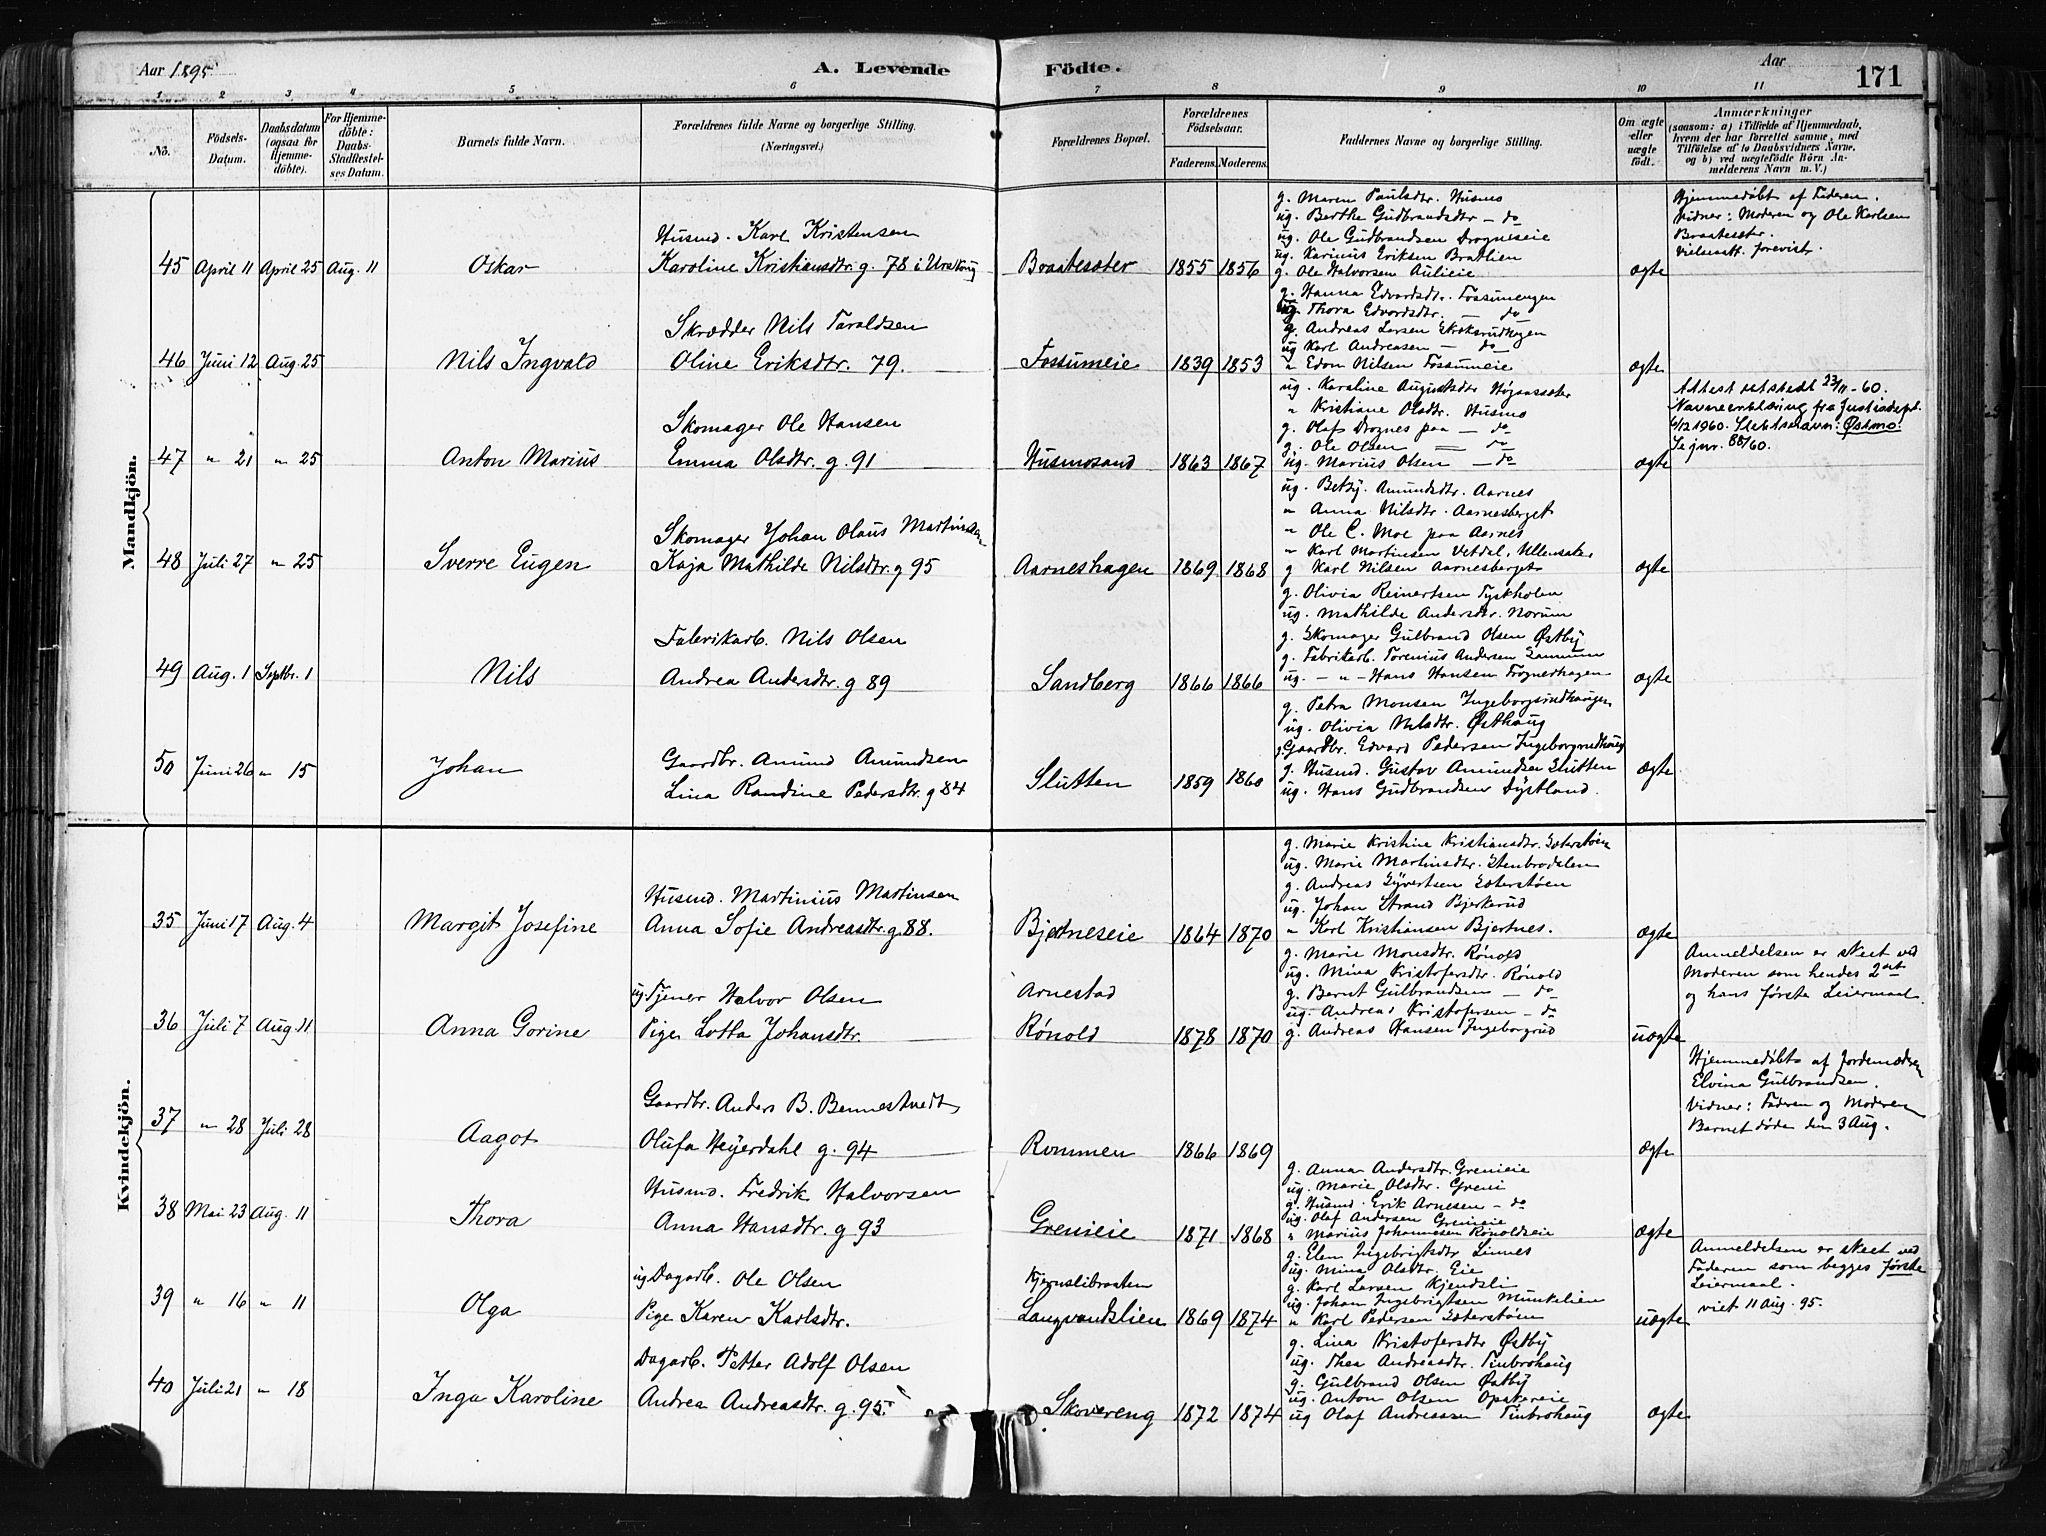 Aar 1895.
A. Levende Födte.
Aar
171
1 2 3 4 5 6 7 8 9 10 11
No.
Födsels-Datum.
Daabsdatum (ogsaa for Hjemmedöbte).
For Hjemmedöbte: Daabs-Stadfestelses Datum.
Barnets fulde Navn.
Forældrenes fulde Navne og borgerlige Stilling. (Næringsvei.)
Forældrenes Bopæl.
Forældrenes Födselsaar.
Faderens. Moderens.
Faddernes Navne og borgerlig Stilling.
Om ægte eller uægte födt.
Anmærkninger
(saasom: a) i Tilfælde af Hjemmedaab,
hvem der har forrettet samme, med
Tilföielse af to Daabsvidners Navne,
og b) ved uægtefödte Börn Anmelderens Navn m. V.)
Mandkjön.
45 April 11 April 25 Aug. 11
Oskar
Husmd. Karl Kristensen
Karoline Kristiansdtr. g. 78 i Urskoug
Braatesæter 1855 1856
g. Maren Paulsdtr. Husmo
ug. Berthe Gudbrandsdtr - do
ug. Ole Gudbrandsen Drogneseie
ug. Karinius Eriksen Bratlien
g. Ole Halvorsen Aulieie
ægte
Hjemmedøbt af Faderen.
Vidner: Moderen og Ole Karlsen
Braatesæter.
Vielsesatt. forevist.
46 Juni 12 Aug. 25
Nils Ingvald
Skrædder Nils Taraldsen
Oline Eriksdtr. 79.
Fossumeie 1839 1853
g. Hanna Edvardsdtr. Fossumengen
ug. Thora Edvardsdtr. - do
g. Andreas Larsen
ug Karl Andreasen - do
" Edon Nilsen Fossumeie
ægte
47 " 21 " 25
Anton Marius
Skomager Ole Hansen
Emma Olsdtr. g. 91
Husmosand 1863 1867
ug. Karoline Augustsdtr Høgaassæter
" Kristiane Olsdtr. Husmo
g. Olaf Drognes paa - do
g. Ole Olsen = do
ug. Marius Olsen - do
ægte
Attest utstedt 23/11-60.
Navneerklæring fra Justisdept.
6/12 1960. Slektsnavn: Østmo.
Se jnr. 88/60.
48 Juli 27 " 25
Sverre Eugen
Skomager Johan Olaus Martinsen
Kaja Mathilde Nilsdtr. g 95
Aarneshagen 1869 1868
ug. Betsy Amundsdtr. Aarnes
" Anna Nilsdtr. Aarnesberget
" Ole C. Moe paa Aarnes
" Karl Martinsen Vetdal, Ullensaker
g Karl Nilsen Aarnesberget
ægte
49 Aug. 1 Septbr. 1
Nils
Fabrikarb. Nils Olsen
Andrea Andersdtr. g 89
Sandberg 1866 1866
g. Olivia Reinertsen Tyskholen
ug. Mathilde Andersdtr. Norum
g. Skomager Gulbrand Olsen Østby
g. Fabrikarb. Torenius Andersen
ug. - " - Hans Hansen Frognerhagen
ægte
50 Juni 26 " 15
Johan
Gaardbr. Amund Amundsen
Lina Randine Pedersdtr. g 84
Slutten 1859 1860
g. Petra Monsen Ingeborgsrudhaugen
ug. Olivia Nilsdtr. Østhaug
g. Gaardbr. Edvard Pedersen Ingeborgrudhaug
g. Husmd. Gustav Amundsen Slutten
ug. Hans Gudbrandsen Dystland.
ægte
Kvindekjön.
35 Juni 17 Aug. 4
Margit Josefine
Husmd. Martinius Martinsen
Anna Sofie Andreasdtr. g. 88.
Bjertneseie 1864 1870
g. Marie Kristine Kristiansdtr. Sæterstøen
ug. Marie Martinsdtr. Stenbrodalen
g. Andreas Syvertsen Sæterstøen
ug. Johan Strand Bjerkerud
" Karl Kristiansen Bjertnes.
ægte
36 Juli 7 Aug. 11
Anna Gorine
ug. Tjener Halvor Olsen
Pige Lotta Johansdtr.
Arnestad
Rónold 1878 1870
g. Marie Monsdtr. Rónold
ug. Mina Kristofersdtr. Rónold
g. Bernt Gulbrandsen - do
ug. Andreas Kristofersen - do
g. Andreas Hansen Ingeborgrud
uægte
Anmeldelsen er skeet ved
Moderen som hendes 2det
og hans første Leiermaal.
37 " 28 Juli 28
Aagot
Gaardbr. Anders B. Bennestvedt
Olufa Heyerdahl g. 94
Rommen 1866 1869
ægte
Hjemmedøbt af Jordemoderen
Elvina Gulbrandsen.
Vidner: Faderen og Moderen
Barnet døde den 3 Aug.
38 Mai 23 Aug. 11
Thora
Husmd. Fredrik Halvorsen
Anna Hansdtr. g 93
Grenieie 1871 1868
g. Anna Andersdtr. Grenieie
ug. Marie Olsdtr. Greni
g. Husmd. Erik Arnesen - do
ug. Olaf Andersen Grenieie
" Marius Johannesen Rónoldseie
ægte
39 " 16 " 11
Olga
ug Dagarb. Ole Olsen
Pige Karen Karlsdtr.
Kjernslibraaten
Langvandslien 1869 1874
g. Elen Ingebrigtsdtr Linnes
ug. Mina Olsdtr. Eie
g. Karl Larsen Kjendsli
ug. Johan Ingebrigtsen Munkelien
" Karl Pedersen Sæterstøen
uægte
Anmeldelsen er skeet ved
Faderen som begges første
Leiermaal.
viet 11 Aug. 95.
40 Juli 21 " 18
Inga Karoline
Dagarb. Petter Adolf Olsen
Andrea Andreasdtr. g. 95.
Skovereng 1872 1874
g. Lina Kristofersdtr Østby
ug. Thea Andreasdtr. Finbrohaug
g. Gulbrand Olsen Østby
ug. Anton Olsen Opakereie
ug Olaf Andreasen Finbrohaug
ægte